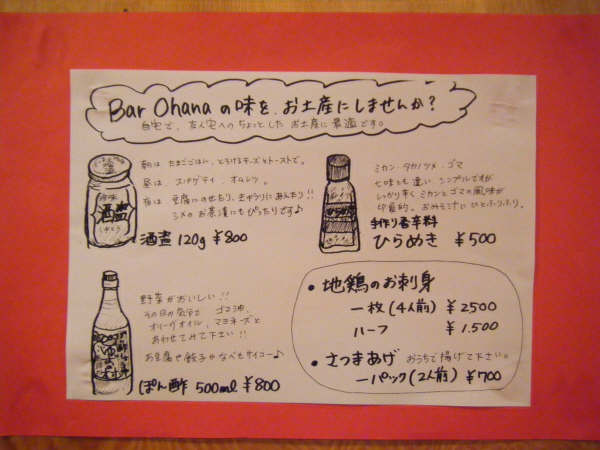 Bar Ohanaの味を、お土産にしませんか?
自宅で、友人宅へのちょっとしたお土産に最適です。
朝は たまごごはん、とろけるチーズとトーストで。
昼は、スパゲティ、オムレツ。
夜は 豆腐にのせたり、きゅうりにあえたり!!
シメの お茶漬にもぴったりです♪
酒盗 120g ¥800
ミカン・タカノツメ・ゴマ
七味とも違い シンプルですが
しっかり辛く ミカンとゴマの風味が
印象的。おみそ汁に ひとふりふり。
手作り香辛料
ひらめき ¥500
野菜がおいしい!!
その日の気分で ゴマ油、
オリーブオイル、マヨネーズと
あわせてみて下さい!!
お豆腐や餃子やなべもサイコー♪
ぽん酢 500ml ¥800
・地鶏のお刺身
一枚(4人前) ¥2500
ハーフ ¥1.500
・さつまあげ おうちで揚げて下さい。
一パック(2人前) ¥700